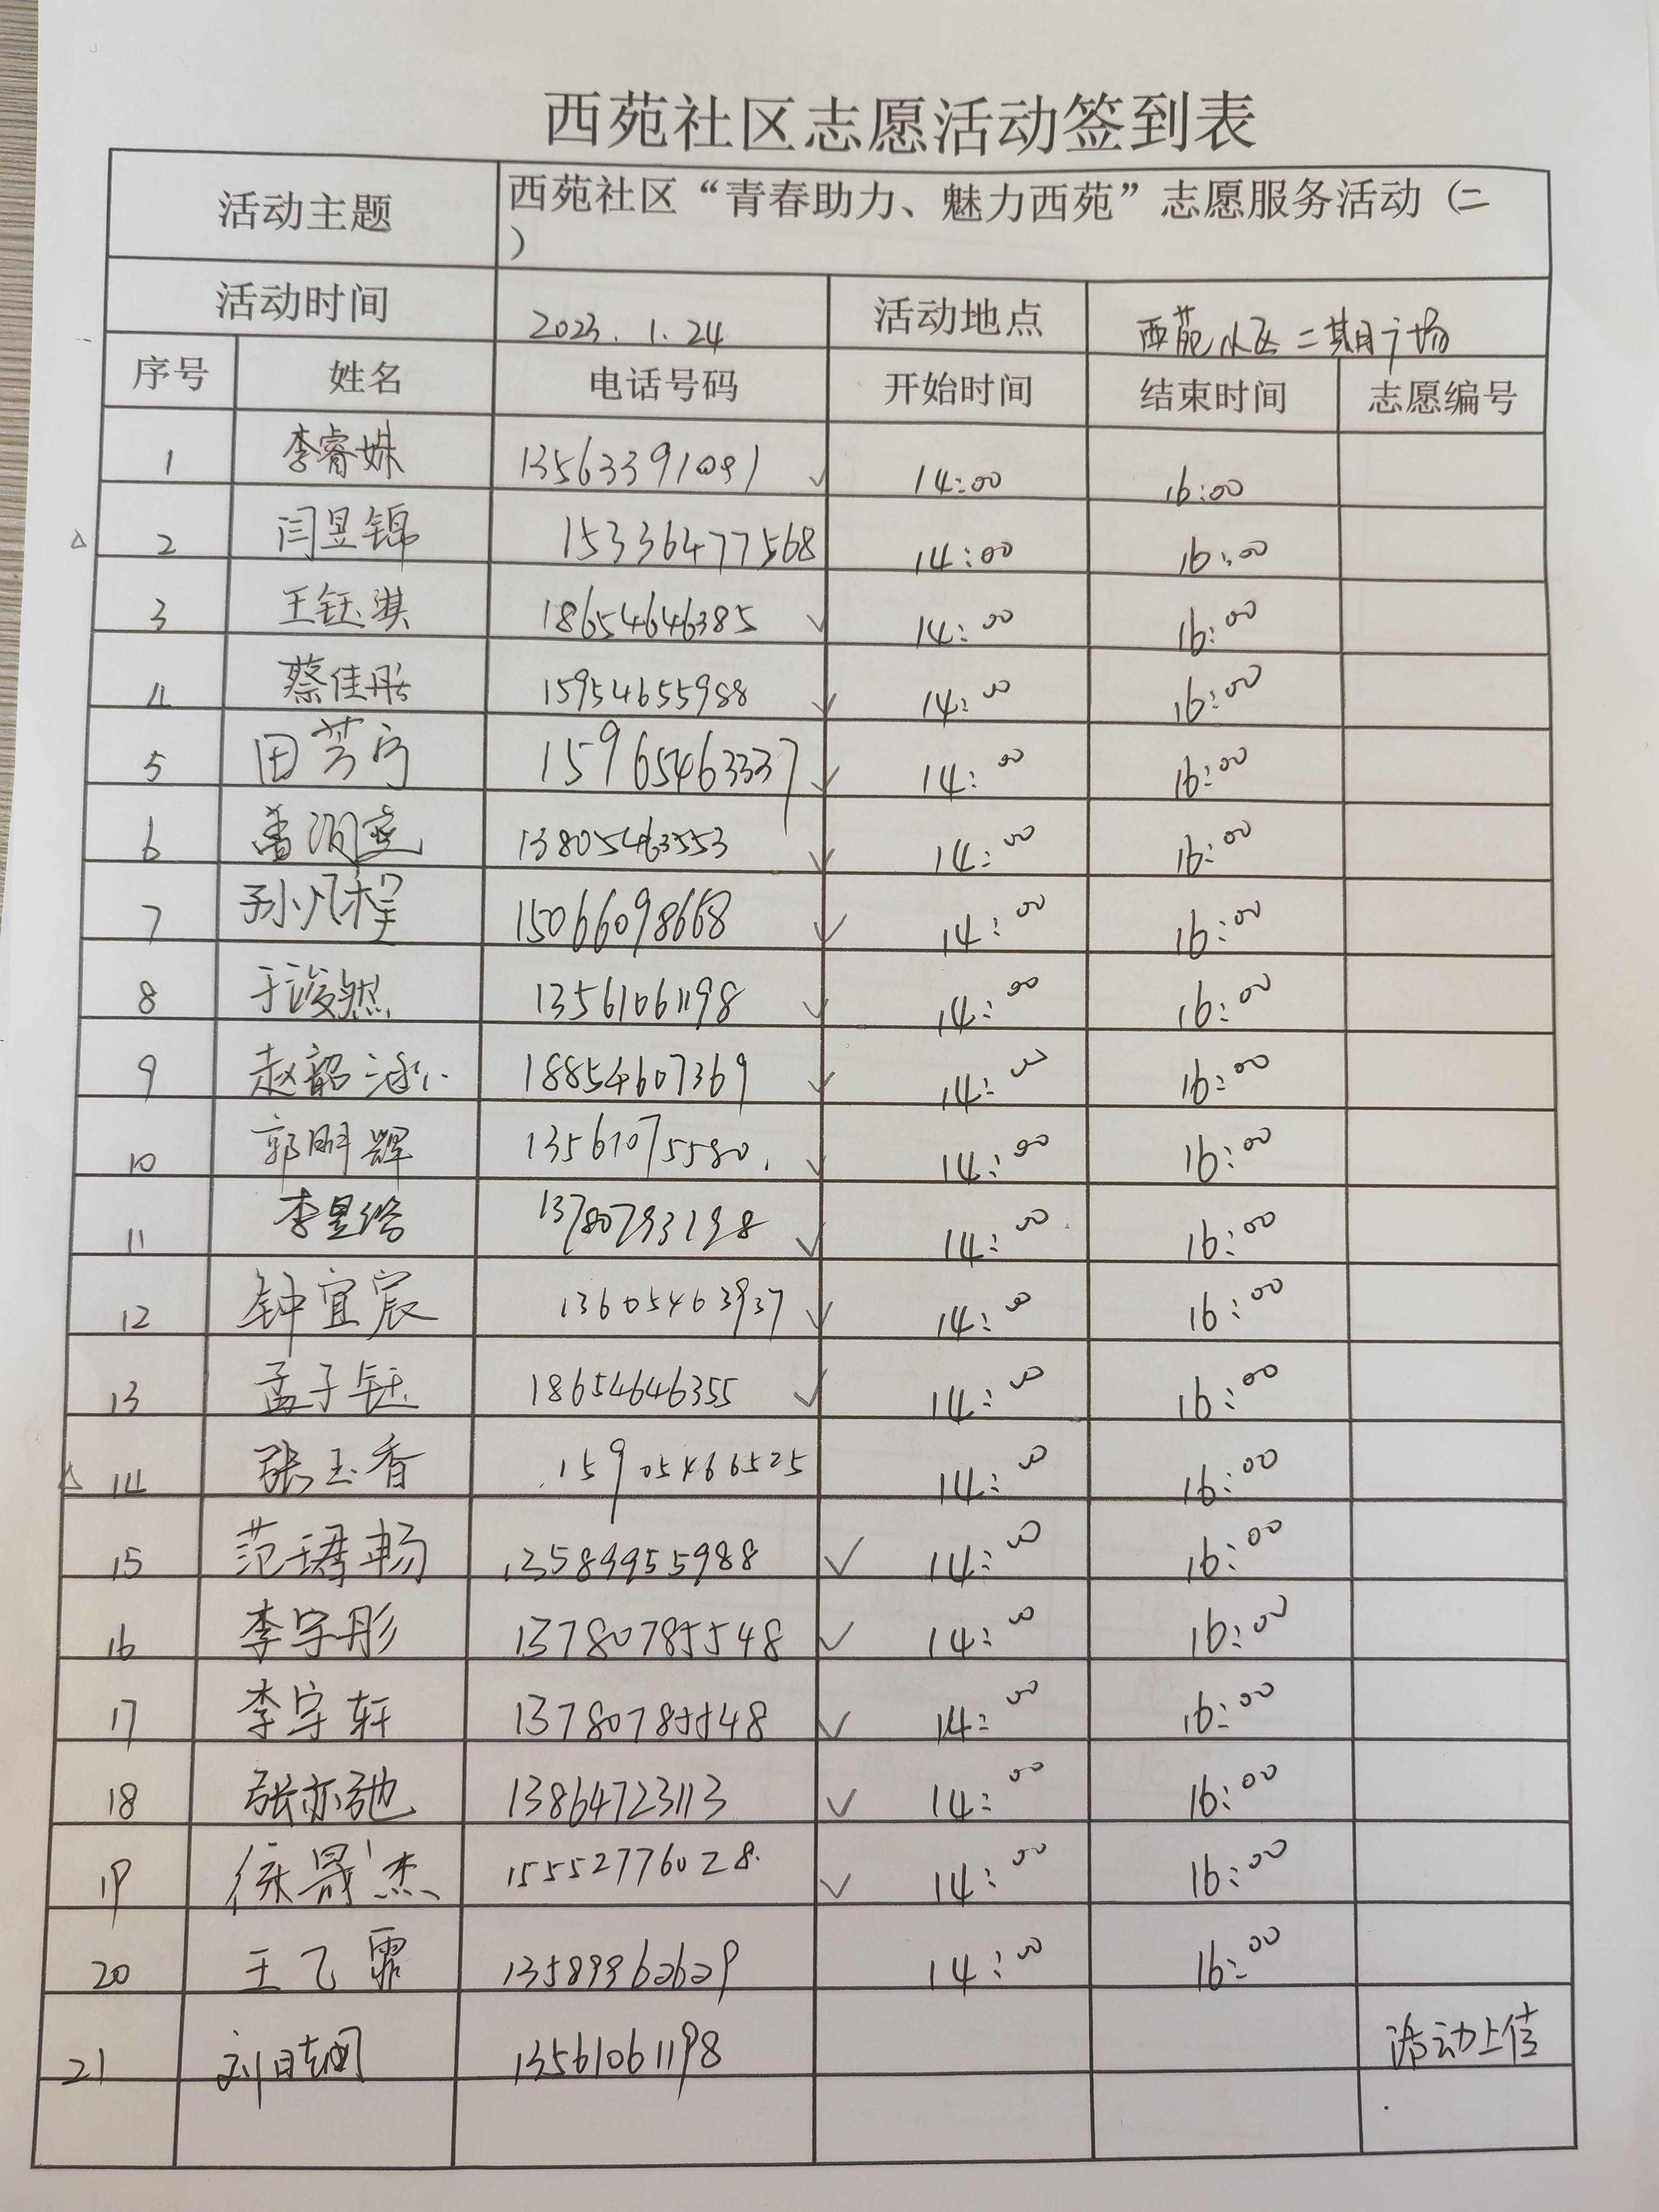 西苑社区志愿活动签到表
活动主题 西苑社区“青春助力、魅力西苑”志愿服务活动（二
）
活动时间 2023.1.24 活动地点 西苑小区二期广场
序号 姓名 电话号码 开始时间 结束时间 志愿编号
1 李睿姝 13563391091 ✓ 14:00 16:00
△ 2 闫昱锦 15336477568 14:00 16:00
3 王钰淇 18654646385 ✓ 14:00 16:00
4 蔡佳彤 15954655988 ✓ 14:00 16:00
5 田芳宁 15965463337 ✓ 14:00 16:00
6 13805463553 ✓ 14:00 16:00
7 孙凡程 15066098668 ✓ 14:00 16:00
8 于浚然 13561061198 ✓ 14:00 16:00
9 赵韶涵 18854607369 ✓ 14:00 16:00
10 郭明辉 13561075580. ✓ 14:00 16:00
11 李昱 13780793198 ✓ 14:00 16:00
12 钟宜宸 13605463937 ✓ 14:00 16:00
13 孟子钰 18654646355 ✓ 14:00 16:00
△ 14 张玉香 15905466525 14:00 16:00
15 范珺畅 13589955988 ✓ 14:00 16:00
16 李宇彤 13780785548 ✓ 14:00 16:00
17 李宇轩 13780785548 ✓ 14:00 16:00
18 张亦弛 13864723113 ✓ 14:00 16:00
19 徐晟杰 15552776028. ✓ 14:00 16:00
20 王乙霏 13589962629 14:00 16:00
21 刘 13561061198 活动上传